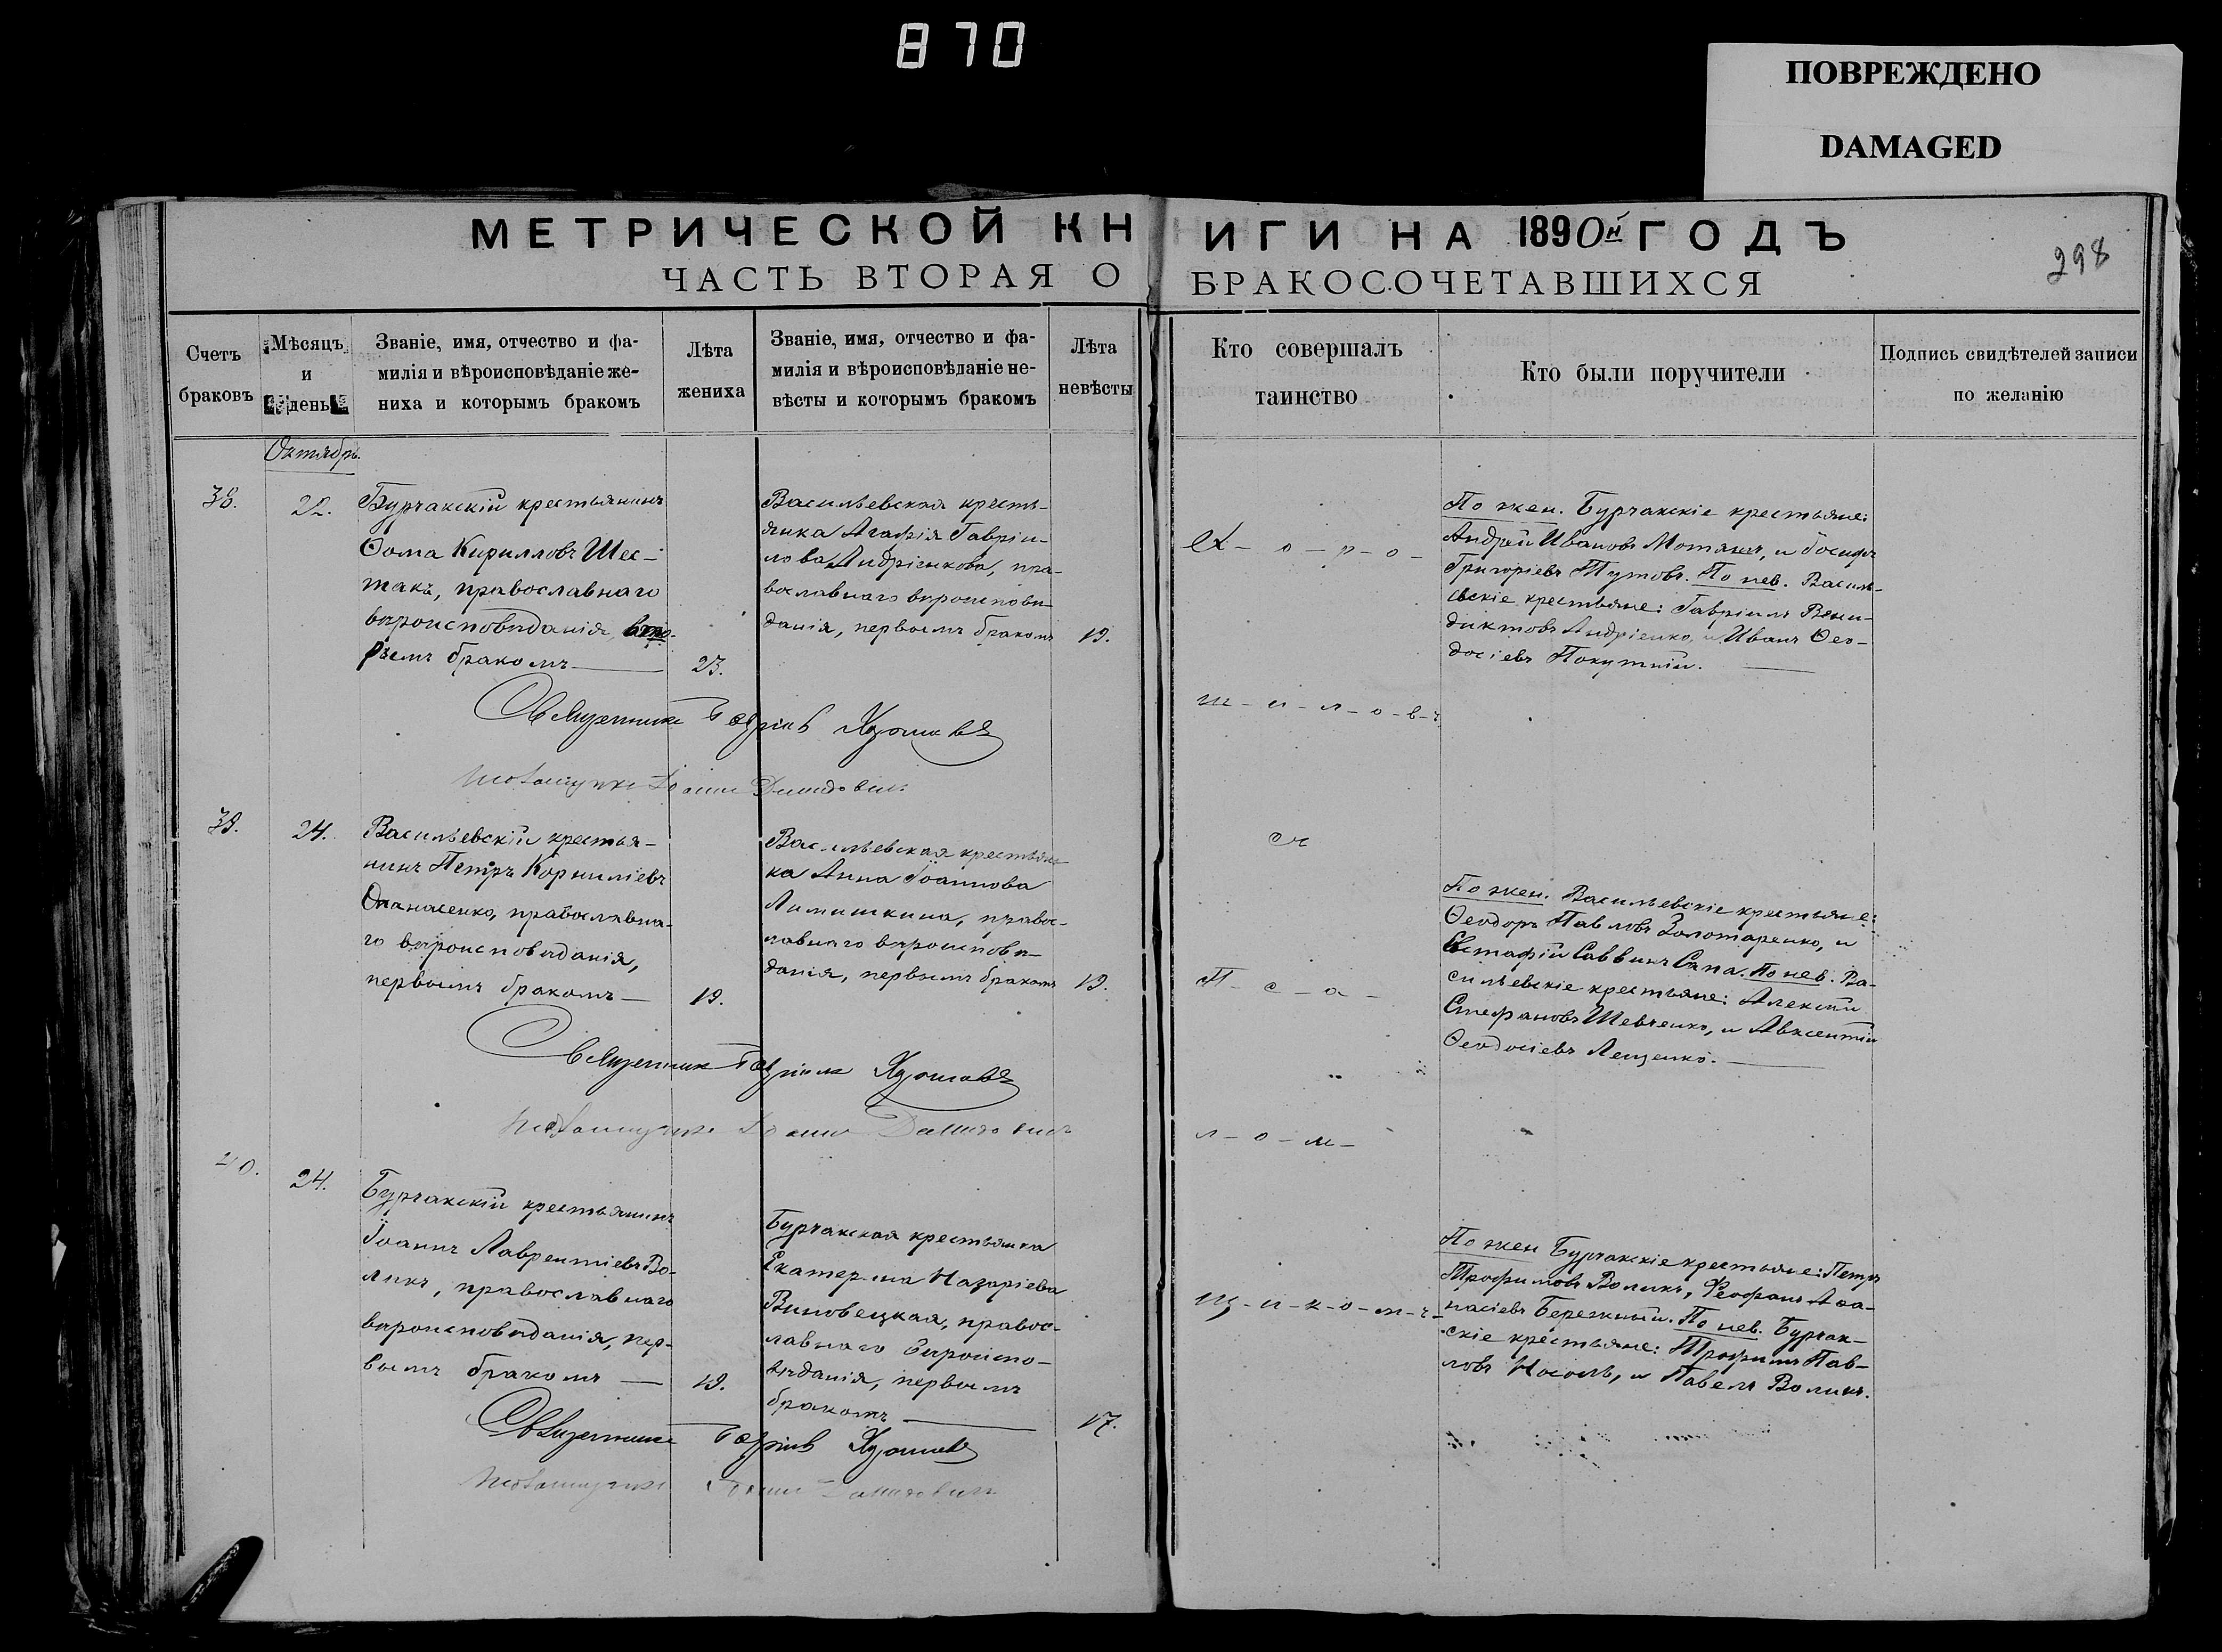 870
ПОВРЕЖДЕНО
DAMAGED
МЕТРИЧЕСКОЙ КНИГИ НА 1890й ГОДЪ
298
ЧАСТЬ ВТОРАЯ О БРАКОСОЧЕТАВШИХСЯ
Счетъ
браковъ
Мѣсяцъ
и
день
Званіе, имя, отчество и фа-
милія и вѣроисповѣданіе же-
ниха и которымъ бракомъ
Лѣта
жениха
Званіе, имя, отчество и фа-
милія и вѣроисповѣданіе не-
вѣсты и которымъ бракомъ
Лѣта
невѣсты
Кто совершалъ
таинство
Кто были поручители
Подпись свидѣтелей записи
по желанію
Октябрь
38.
22.
Бурчакскій крестьянинъ
Ѳома Кирилловъ Шес-
такъ, православнаго
вѣроисповѣданія,
бракомъ
23.
Васильевская кресть-
янка Агафія Гавріи-
лова Андріенкова, пра-
вославнаго вѣроисповѣ-
данія, первымъ бракомъ
19.
По жен. Бурчакскіе крестьяне:
Андрей Ивановъ и Іосифъ
Григоріевъ Тутовъ. По нев. Василь-
евскіе крестьяне: Гавріилъ Вени-
диктовъ Андріенко, и Иванъ Ѳео-
досіевъ Покутній.
Священникъ Гавріилъ
Псаломщикъ Іоаннъ Демидовичъ
39.
24.
Васильевскій крестья-
нинъ Петръ Корниліевъ
Опанасенко, православна-
го вѣроисповѣданія,
первымъ бракомъ
19.
Васильевская крестьян-
ка Анна Іоаннова
правос-
лавнаго вѣроисповѣ-
данія, первымъ бракомъ
19.
По жен. Васильевскіе крестьяне:
Ѳеодоръ Павловъ Золотаренко, и
Евстафій Саввинъ Сапа. По нев. Ва-
сильевскіе крестьяне: Алексѣй
Стефановъ Шевченко, и Авксентій
Ѳеодосіевъ Лещенко.
Священникъ Гавріилъ
Псаломщикъ Іоаннъ Демидовичъ
40.
24.
Бурчакскій крестьянинъ
Іоаннъ Лаврентіевъ Во-
ликъ, православнаго
вѣроисповѣданія, пер-
вымъ бракомъ
19.
Бурчакская крестьянка
Екатерина Назаріева
Виновецкая, правос-
лавнаго вѣроиспо-
вѣданія, первымъ
бракомъ
17.
По жен. Бурчакскіе крестьяне: Петръ
Трофимовъ Воликъ, Ѳеофанъ Аѳа-
насіевъ Бережный. По нев. Бурчак-
скіе крестьяне: Трофимъ Пав-
ловъ Носоль, и Павелъ Воликъ.
Священникъ Гавріилъ
Псаломщикъ Іоаннъ Демидовичъ
т-и-л-о-в-ъ
съ
П-с-а-
л-о-м-
щ-и-к-о-м-ъ